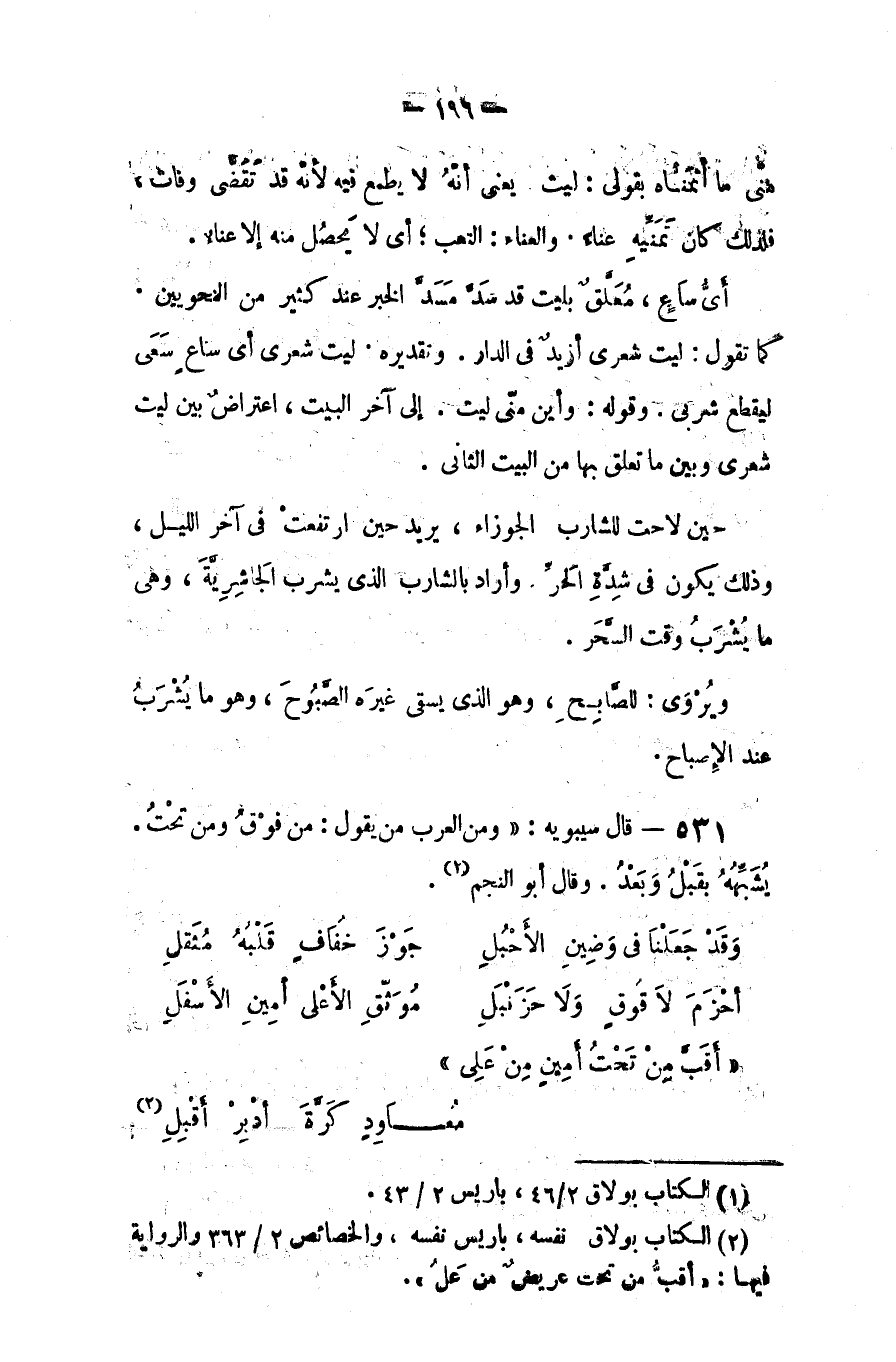 — ١٩٦ —
منّى ما أتمنّاه بقولى : ليت يعنى أنهُ لا يطمع فيه لأنه قد تَقَضَّى وفات ،
فلذلك كان تَمَنِّيهِ عناء . والعناء : التعب ؛ أى لا يَحصُل منه إلا عناء .
أىُّ ساعٍ ، مُعَلَّقٌ بليت قد سَدَّ مَسَدَّ الخبر عند كثير من النحويين .
كما تقول : ليت شعرى أزيدٌ فى الدار . وتقديره . ليت شعرى أى ساعٍ سَعَى
ليقطع شربى . وقوله : وأين منّى ليت . إلى آخر البيت ، اعتراضٌ بين ليت
شعرى وبين ما تعلق بها من البيت الثانى .
حين لاحت للشارب الجوزاء ، يريد حين ارتفعتْ فى آخر الليل ،
وذلك يكون فى شدِّةِ الحرِّ . وأراد بالشارب الذى يشرب الجَاشِرِيَّةَ ، وهى
ما يُشْرَبُ وقت السَّحَر .
ويُرْوَى : للصَّابِحِ ، وهو الذى يسقى غيرَه الصَّبُوحَ ، وهو ما يُشْرَبُ
عند الإصباح .
٥٣١ — قال سيبويه : « ومن العرب من يقول : من فوقُ ومن تحْتُ .
يُشَبِّهُهُ بقَبْلُ وَبَعْدُ . وقال أبو النجم (٢) .
وَقَدْ جَعَلْنَا فى وَضِينِ الأَحْبُلِ جَوْزَ خُفَافٍ قَلْبُهُ مُثَقلِ
أَحْزَمَ لاَ قُوقٍ وَلَا حَزَنْبَلِ مُوَثَّقِ الأَعْلى أمِينِ الأَسْفَلِ
« أَقَبَّ مِنْ تَحْتُ أَمِينٍ مِنْ عَلِى »
مُعَـاوِدٍ كَرَّةَ أدْبِرْ أَقْبِلِ (٢)
(١) الكتاب بولاق ٤٦/٢ ، باريس ٢ / ٤٣ .
(٢) الكتاب بولاق نفسه ، باريس نفسه ، والخصائص ٢ / ٣٦٣ والرواية
فيها : « أقبُّ من تحت عريضٌ من عَلُ » .